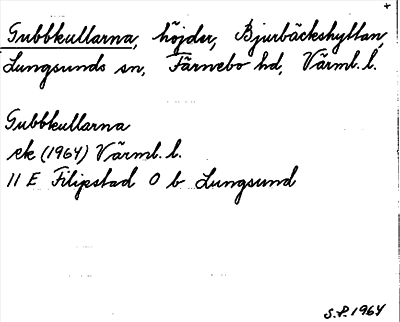 Gubbkullarna, höjder, Bjurbäckshyttan,
Lungsunds sn, Färnebo hd, Värml. l.
Gubbkullarna
ek (1964) Värml. l.
11 E Filipstad 0 b Lungsund
S.P. 1964